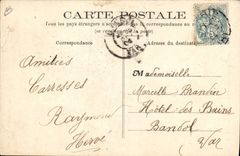 CARTE POSTALE
Tous les pays étrangers n'acceptent pas la correspondance
(se renseigner à la poste)
Correspondance
Adresse
Amitiés
Caresses
Raymond
Hervé
Mademoiselle
Marcelle
Hôtel des Bains
Bandol
Var